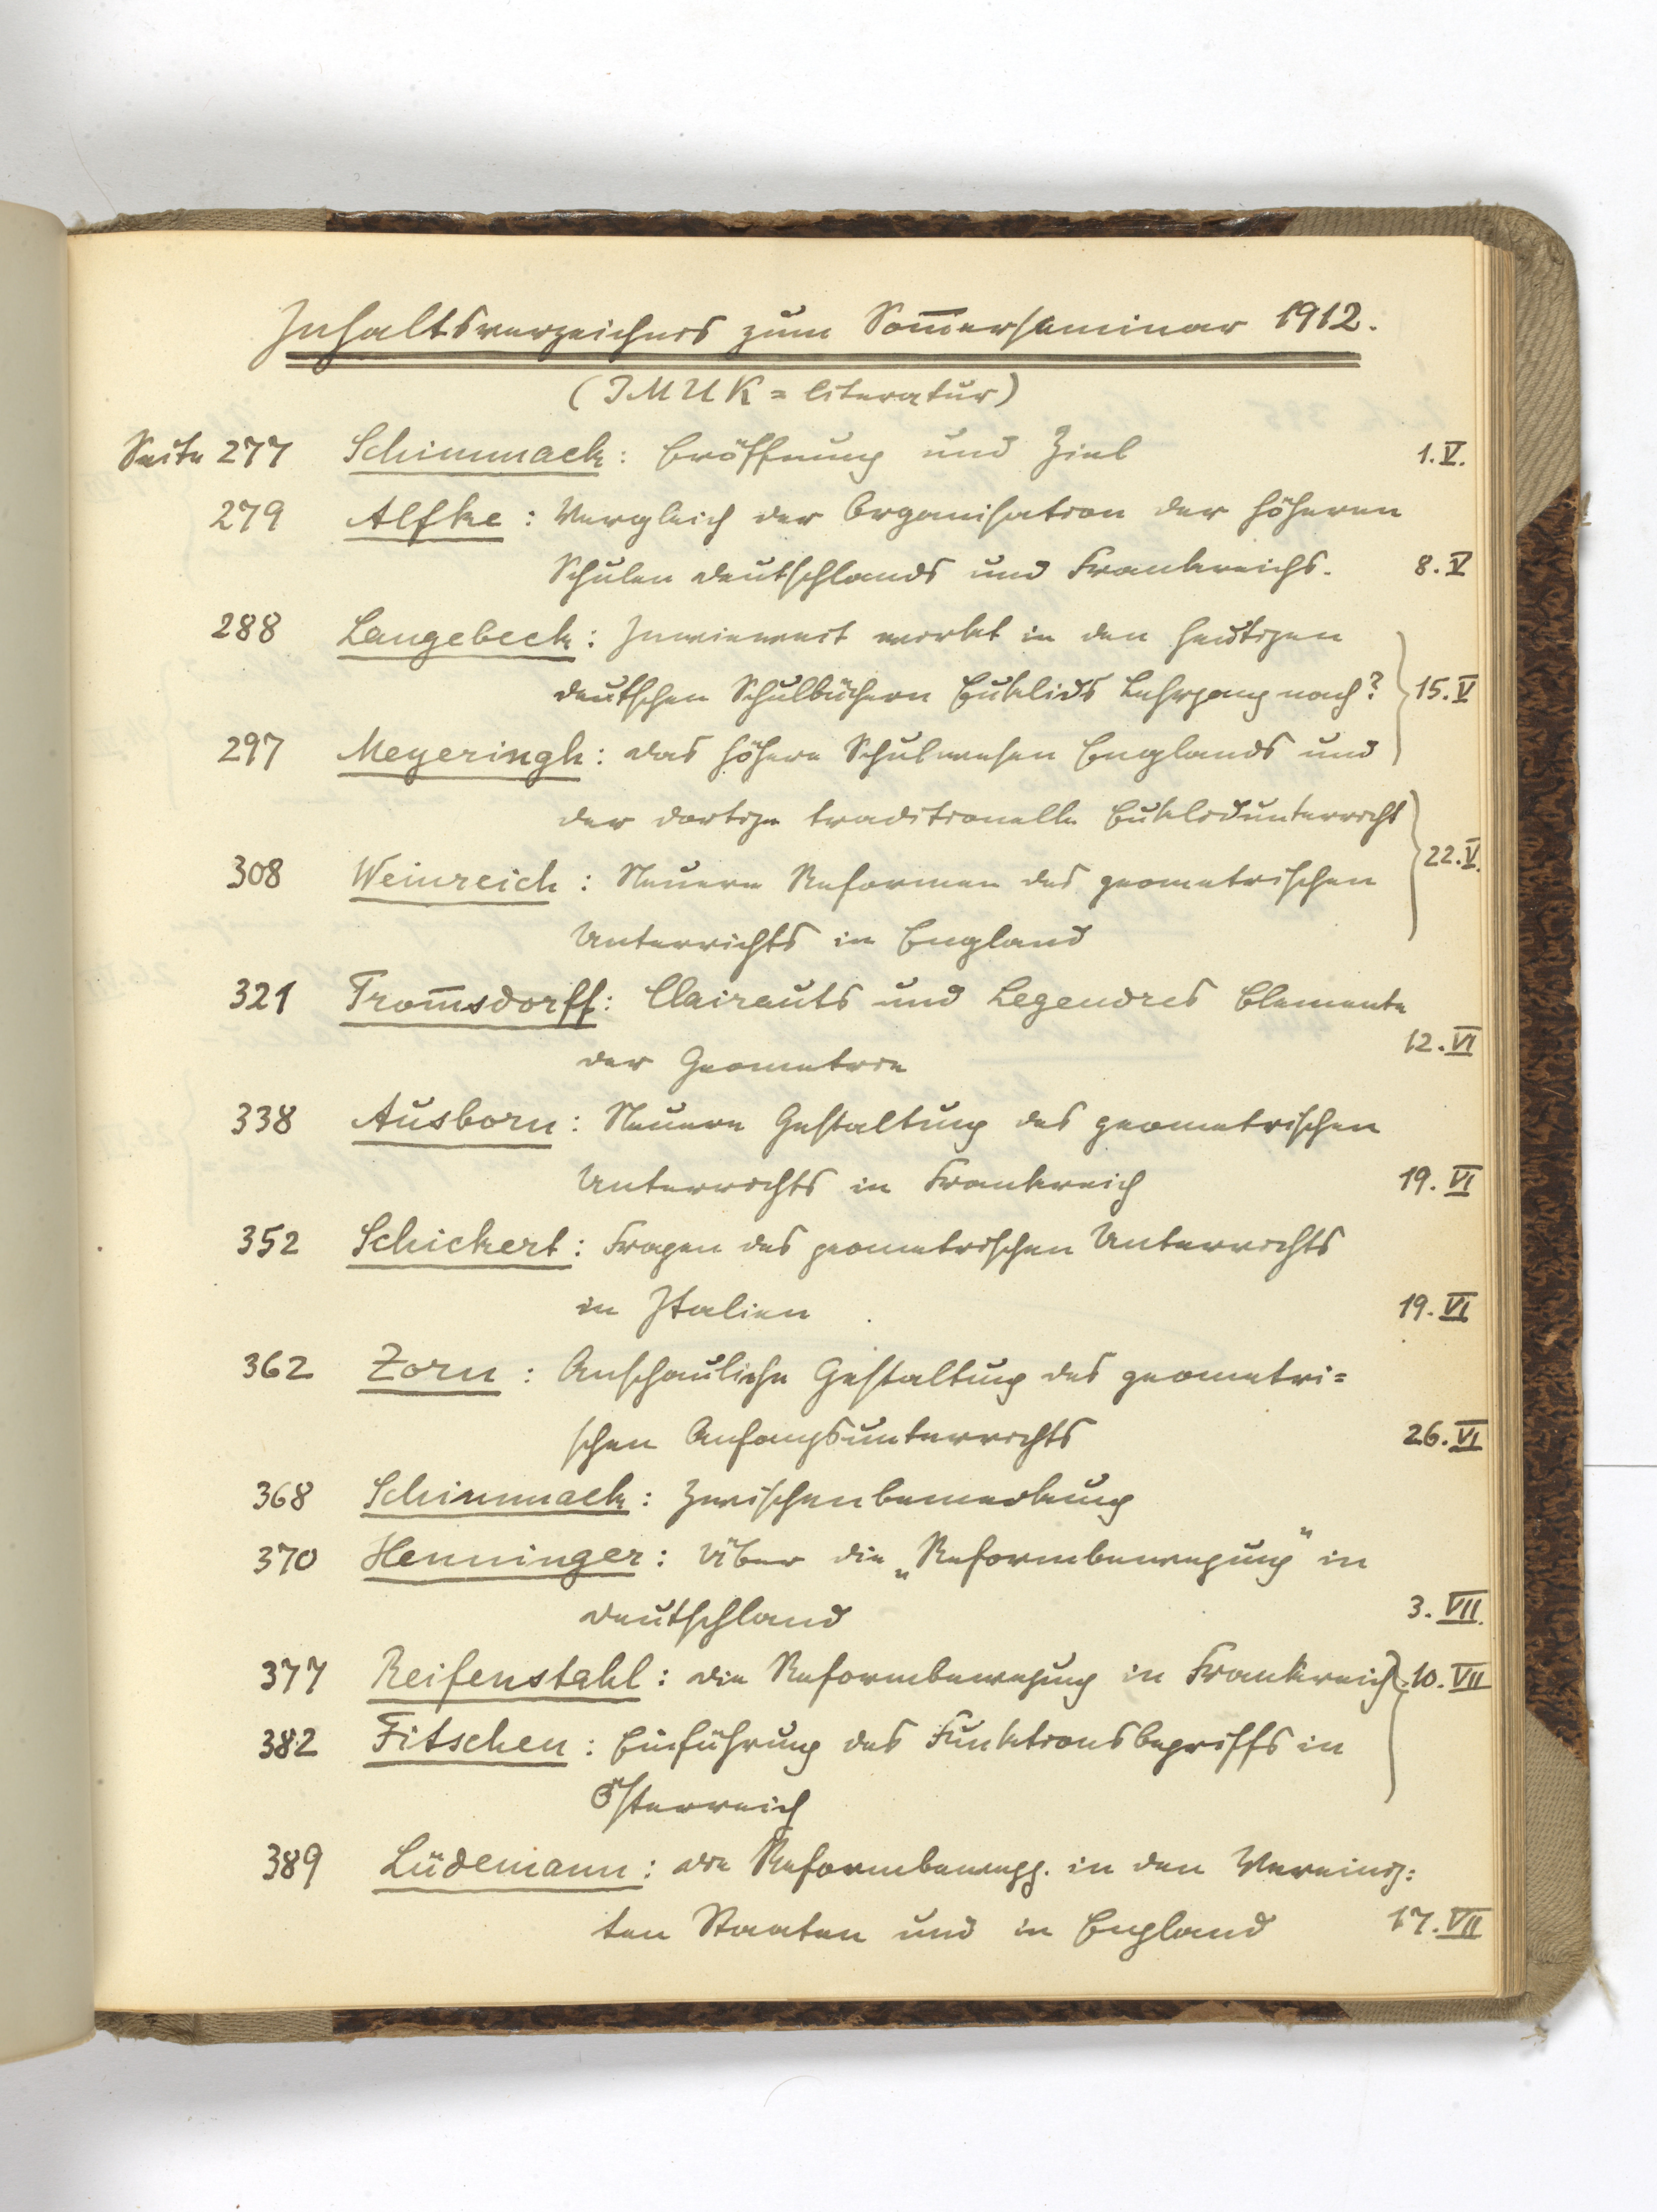 Inhaltsverzeichnis zum Som̅erseminar 1912.
(IMUK = Literatur)
Seite 277 Schimmack: Eröffnung und Ziel 1.V.
279 Alfke: Vergleich der Organisation der höheren
Schulen Deutschlands und Frankreichs. 8.V
288 Langebeck: Inwieweit wirkt in den heutigen
deutschen Schulbüchern Euklids Lehrgang nach? 15.V
297 Meyeringh: Das höhere Schulwesen Englands und
der dortige traditionelle Euklidunterricht
22.V.
308 Weinreich: Neuere Reformen des geometrischen
Unterrichts in England
321 Trom̅sdorff: Clairauts und Legendres Elemente
der Geometrie 12.VI
338 Ausborn: Neuere Gestaltung des geometrischen
Unterrichts in Frankreich 19.VI
352 Schickert: Fragen des geometrischen Unterrichts
in Italien 19.VI
362 Zorn: Anschauliche Gestaltung des geometri=
schen Anfangsunterrichts 26.VI
368 Schimmack: Zwischenbemerkung
370 Henninger: Über die „Reformbewegung" in
Deutschland 3.VII.
377 Reifenstahl: Die Reformbewegung in Frankreich 10.VII
382 Fitschen: Einführung des Funktionsbegriffs in
Österreich
389 Lüdemann: Die Reformbewegg. in den Vereinig=
ten Staaten und in England 17.VII